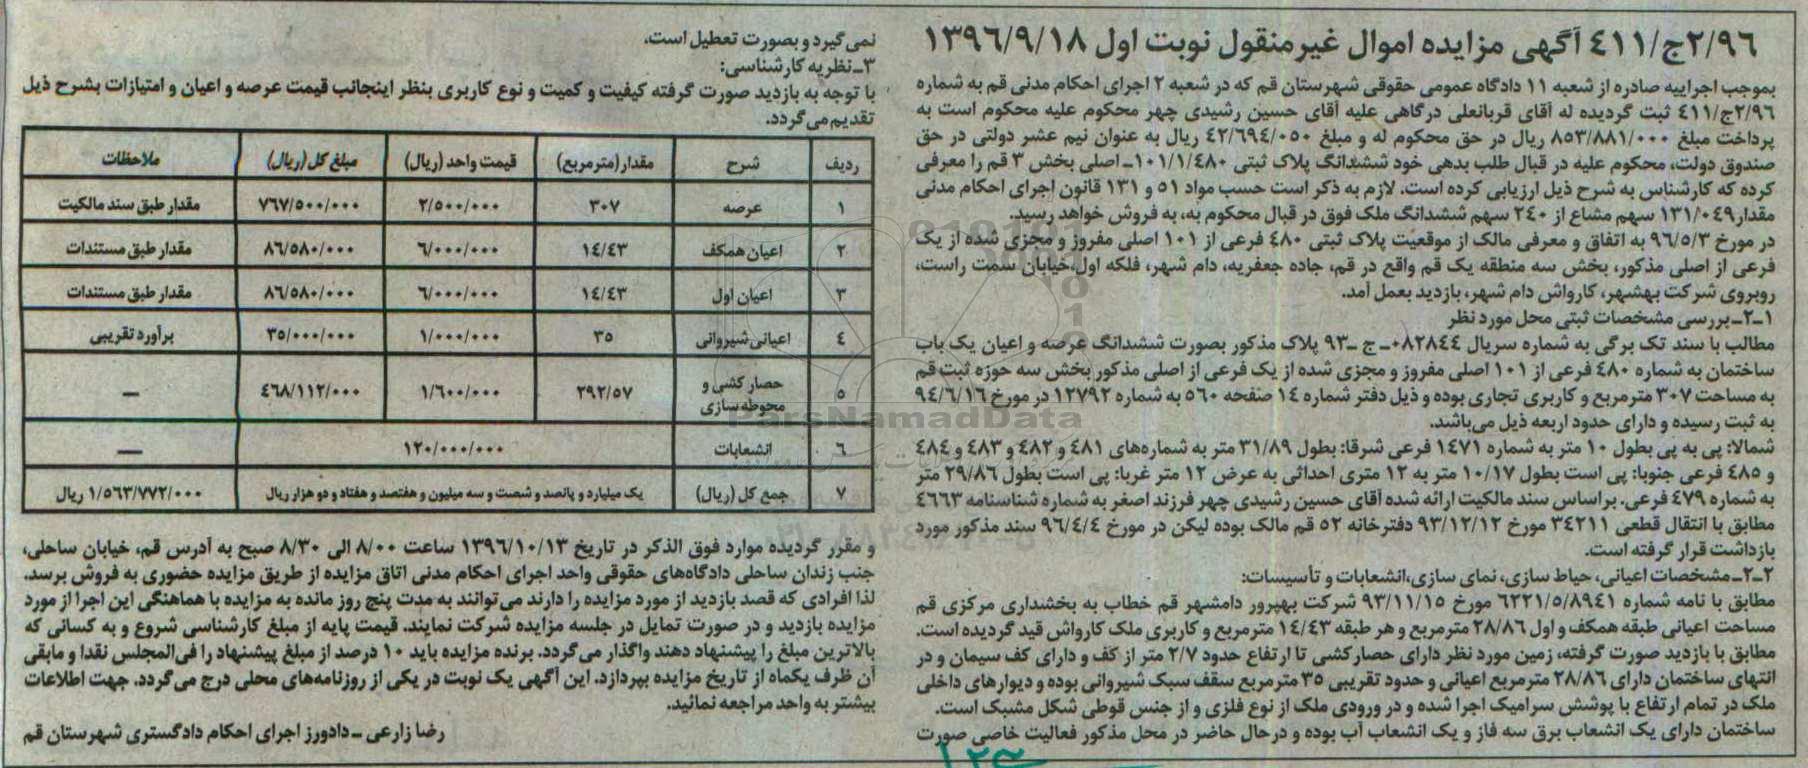 ۴۱۱/ج۲/۹۶ آگهی مزایده اموال غیرمنقول نوبت اول ۱۳۹۶/۹/۱۸
بموجب اجراییه صادره از شعبه ۱۱ دادگاه عمومی حقوقی شهرستان قم که در شعبه ۲ اجرای احکام مدنی قم به شماره
۴۱۱/ج۲/۹۶ ثبت گردیده له آقای قربانعلی درگاهی علیه آقای حسین رشیدی چهر محکوم علیه محکوم است به
پرداخت مبلغ ۸۵۳/۸۸۱/۰۰۰ ریال در حق محکوم له و مبلغ ۴۲/۶۹۴/۰۵۰ ریال به عنوان نیم عشر دولتی در حق
صندوق دولت، محکوم علیه در قبال طلب بدهی خود ششدانگ پلاک ثبتی ۱۰۱/۱/۴۸۰ـ اصلی بخش ۳ قم را معرفی
کرده که کارشناس به شرح ذیل ارزیابی کرده است. لازم به ذکر است حسب مواد ۵۱ و ۱۳۱ قانون اجرای احکام مدنی
مقدار ۱۳۱/۰۴۹ سهم مشاع از ۲۴۰ سهم ششدانگ ملک فوق در قبال محکوم به، به فروش خواهد رسید.
در مورخ ۹۶/۵/۳ به اتفاق و معرفی مالک از موقعیت پلاک ثبتی ۴۸۰ فرعی از ۱۰۱ اصلی مفروز و مجزی شده از یک
فرعی از اصلی مذکور، بخش سه منطقه یک قم واقع در قم، جاده جعفریه، دام شهر، فلکه اول،خیابان سمت راست،
روبروی شرکت بهشهر، کارواش دام شهر، بازدید بعمل آمد.
۱ـ۲ـ بررسی مشخصات ثبتی محل مورد نظر
مطالب با سند تک برگی به شماره سریال ۰۸۲۸۴۴ـ ج ـ۹۳ پلاک مذکور بصورت ششدانگ عرصه و اعیان یک باب
ساختمان به شماره ۴۸۰ فرعی از ۱۰۱ اصلی مفروز و مجزی شده از یک فرعی از اصلی مذکور بخش سه حوزه ثبت قم
به مساحت ۳۰۷ مترمربع و کاربری تجاری بوده و ذیل دفتر شماره ۱۴ صفحه ۵۶۰ به شماره ۱۲۷۹۲ در مورخ ۹۴/۶/۱۶
به ثبت رسیده و دارای حدود اربعه ذیل می‌باشد.
شمالا: پی به پی بطول ۱۰ متر به شماره ۱۴۷۱ فرعی شرقا: بطول ۳۱/۸۹ متر به شماره‌های ۴۸۱ و ۴۸۲ و ۴۸۳ و ۴۸۴
و ۴۸۵ فرعی جنوبا: پی است بطول ۱۰/۱۷ متر به ۱۲ متری احداثی به عرض ۱۲ متر غربا: پی است بطول ۲۹/۸۶ متر
به شماره ۴۷۹ فرعی. براساس سند مالکیت ارائه شده آقای حسین رشیدی چهر فرزند اصغر به شماره شناسنامه ۴۶۶۳
مطابق با انتقال قطعی ۳۴۲۱۱ مورخ ۹۳/۱۲/۱۲ دفترخانه ۵۲ قم مالک بوده لیکن در مورخ ۹۶/۴/۴ سند مذکور مورد
بازداشت قرار گرفته است.
۲ـ۲ـ مشخصات اعیانی، حیاط سازی، نمای سازی،انشعابات و تأسیسات:
مطابق با نامه شماره ۶۲۲۱/۵/۸۹۴۱ مورخ ۹۳/۱۱/۱۵ شرکت بهپرور دامشهر قم خطاب به بخشداری مرکزی قم
مساحت اعیانی طبقه همکف و اول ۲۸/۸۶ مترمربع و هر طبقه ۱۴/۴۳ مترمربع و کاربری ملک کارواش قید گردیده است.
مطابق با بازدید صورت گرفته، زمین مورد نظر دارای حصارکشی تا ارتفاع حدود ۲/۷ متر از کف و دارای کف سیمان و در
انتهای ساختمان دارای ۲۸/۸۶ مترمربع اعیانی و حدود تقریبی ۳۵ مترمربع سقف سبک شیروانی بوده و دیوارهای داخلی
ملک در تمام ارتفاع با پوشش سرامیک اجرا شده و در ورودی ملک از نوع فلزی و از جنس قوطی شکل مشبک است.
ساختمان دارای یک انشعاب برق سه فاز و یک انشعاب آب بوده و درحال حاضر در محل مذکور فعالیت خاصی صورت
نمی‌گیرد و بصورت تعطیل است.
۳ـ نظریه کارشناسی:
با توجه به بازدید صورت گرفته کیفیت و کمیت و نوع کاربری بنظر اینجانب قیمت عرصه و اعیان و امتیازات بشرح ذیل
تقدیم می‌گردد.
ردیف شرح مقدار(مترمربع) قیمت واحد (ریال) مبلغ کل (ریال) ملاحظات
۱ عرصه ۳۰۷ ۲/۵۰۰/۰۰۰ ۷۶۷/۵۰۰/۰۰۰ مقدار طبق سند مالکیت
۲ اعیان همکف ۱۴/۴۳ ۶/۰۰۰/۰۰۰ ۸۶/۵۸۰/۰۰۰ مقدار طبق مستندات
۳ اعیان اول ۱۴/۴۳ ۶/۰۰۰/۰۰۰ ۸۶/۵۸۰/۰۰۰ مقدار طبق مستندات
۴ اعیانی شیروانی ۳۵ ۱/۰۰۰/۰۰۰ ۳۵/۰۰۰/۰۰۰ برآورد تقریبی
۵ حصار کشی و محوطه سازی ۲۹۲/۵۷ ۱/۶۰۰/۰۰۰ ۴۶۸/۱۱۲/۰۰۰ —
۶ انشعابات ۱۲۰/۰۰۰/۰۰۰ —
۷ جمع کل (ریال) یک میلیارد و پانصد و شصت و سه میلیون و هفتصد و هفتاد و دو هزار ریال ۱/۵۶۳/۷۷۲/۰۰۰ ریال
و مقرر گردیده موارد فوق الذکر در تاریخ ۱۳۹۶/۱۰/۱۳ ساعت ۸/۰۰ الی ۸/۳۰ صبح به آدرس قم، خیابان ساحلی،
جنب زندان ساحلی دادگاه‌های حقوقی واحد اجرای احکام مدنی اتاق مزایده از طریق مزایده حضوری به فروش برسد.
لذا افرادی که قصد بازدید از مورد مزایده را دارند می‌توانند به مدت پنج روز مانده به مزایده با هماهنگی این اجرا از مورد
مزایده بازدید و در صورت تمایل در جلسه مزایده شرکت نمایند. قیمت پایه از مبلغ کارشناسی شروع و به کسانی که
بالاترین مبلغ را پیشنهاد دهند واگذار می‌گردد. برنده مزایده باید ۱۰ درصد از مبلغ پیشنهاد را فی‌المجلس نقدا و مابقی
آن ظرف یکماه از تاریخ مزایده بپردازد. این آگهی یک نوبت در یکی از روزنامه‌های محلی درج می‌گردد. جهت اطلاعات
بیشتر به واحد مراجعه نمائید.
رضا زارعی ـ دادورز اجرای احکام دادگستری شهرستان قم
ParsNamadData